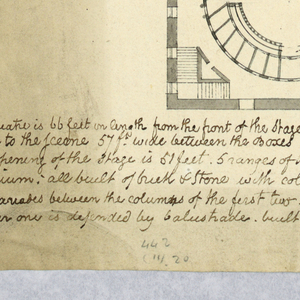 eatre is 66 feet in length from the front of the Stage
to the Scene 57 ft wide between the Boxes
pening of the Stage is 31 feet. 5 ranges of
ium. all built of brick & Stone with col
between the columns of the first two.
er one is defended by balustrade. built
442